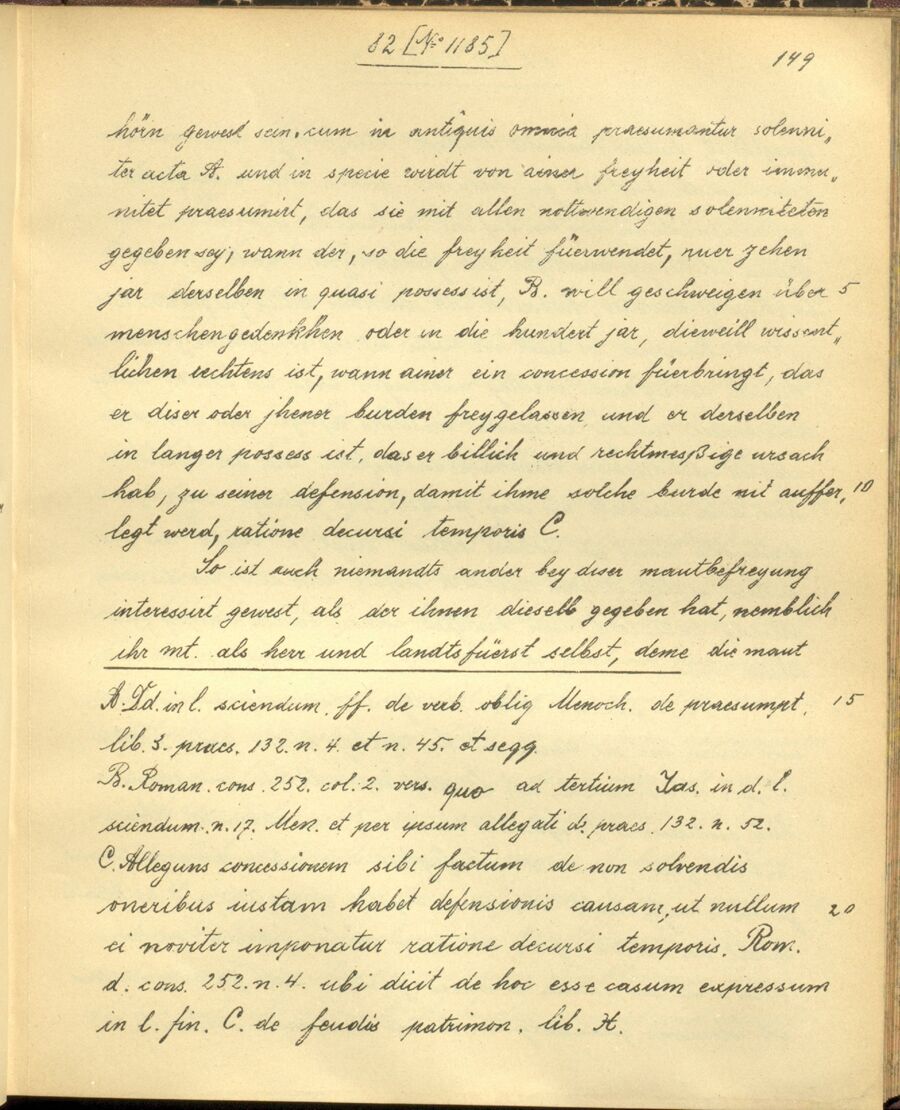 82 [No 1185]
149
hörn gewest sein, cum in antiquis omnia praesumantur solenni„
ter acta A. und in specie wirdt von ainer freyheit oder immu„
nitet praesumirt, das sie mit allen nottwendigen solenniteten
gegeben sey, wann der, so die freyheit füerwendet, nuer zehen
jar derselben in quasi possess ist, B. will geschweigen über 5
menschengedenkhen oder in die hundert jar, dieweill wissent„
lichen rechtens ist, wann ainer ein concession füerbringt, das
er diser oder jhener burden freygelassen und er derselben
in langer possess ist, das er billich und rechtmeßige ursach
hab, zu seiner defension, damit ihme solche burde nit auffer„ 10
legt werd, ratione decursi temporis C.
So ist auch niemandts ander bey diser mautbefreyung
interessirt gewest, als der ihnen dieselb gegeben hat, nemblich
ihr mt. als herr und landtsfüerst selbst, deme die maut
A. Dd. in l. sciendum. ff. de verb. oblig Menoch. de praesumpt. 15
lib. 3. praes. 132. n. 4. et n. 45. et segg.
B. Roman. cons. 252. col. 2. vers. quo ad tertium Jas. in d. l.
sciendum. n. 17. Men. et per ipsum allegati d. praes. 132. n. 52.
C. Allegans concessionem sibi factum de non solvendis
oneribus iustam habet defensionis causam, ut nullum 20
ei noviter imponatur ratione decursi temporis. Rom.
d. cons. 252. n. 4. ubi dicit de hoc esse casum expressum
in l. fin. C. de feudis patrimon. lib.